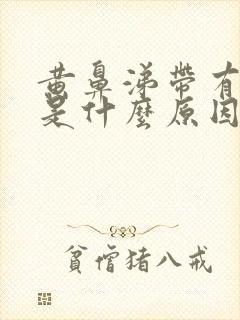 黄鼻涕帶有
是什麼原因
貧僧猪八戒